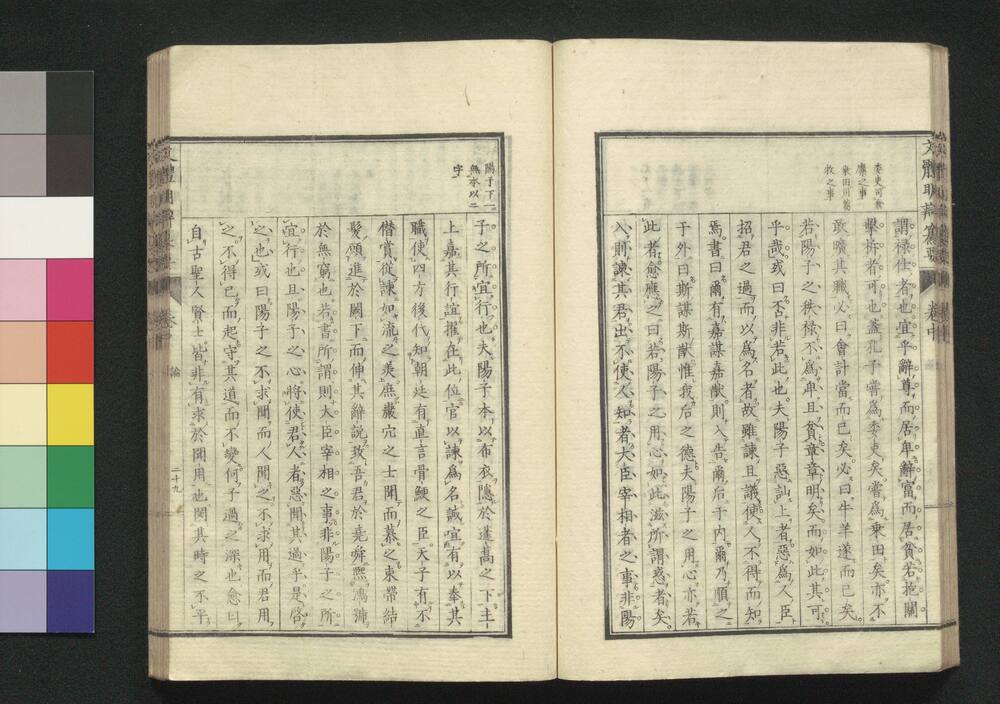 文體明辯纂要
卷中
委吏可教
乘田川
牧之事
謂祿仕者也宜乎辭尊而居卑辭富而居貧若抱關
擊柝者可也蓋孔子嘗爲委吏矣嘗爲乘田矣亦不
敢曠其職必曰會計當而已矣必曰牛羊遂而已矣
若陽子之秩祿不爲卑且貧章章明矣而如此其可
乎哉或曰否非若此也夫陽子惡訕上者惡爲人臣
招君之過而以爲名者故雖諫且議使人不得而知
焉書曰爾有嘉謀嘉猷則入告爾后于内爾乃順之
于外曰斯謀斯猷惟我后之德夫陽子之用心亦若
此者愈應之曰若陽子之用心如此滋所謂惑者矣
入則諫其君出不使人知者大臣宰相者之事非陽
陽子下一
無本以二
字
子之所宜行也夫陽子本以布衣隱於蓬蒿之下主
上嘉其行誼擢在此位官以諫爲名誠宜有以奉其
職使四方後代知朝廷有直言骨鯁之臣天子有不
僭賞從諫如流之美庶巖穴之士聞而慕之束帶結
髮願進於闕下而伸其辭說致吾君於堯舜熙鴻號
於無窮也若書所謂則大臣宰相之事非陽子之所
宜行也且陽子之心將使君人者惡聞其過乎是啓
之也或曰陽子之不求聞而人聞之不求用而君用
之不得已而起守其道而不變何子過之深也愈曰
自古聖人賢士皆非有求於聞用也閔其時之不平
二十九